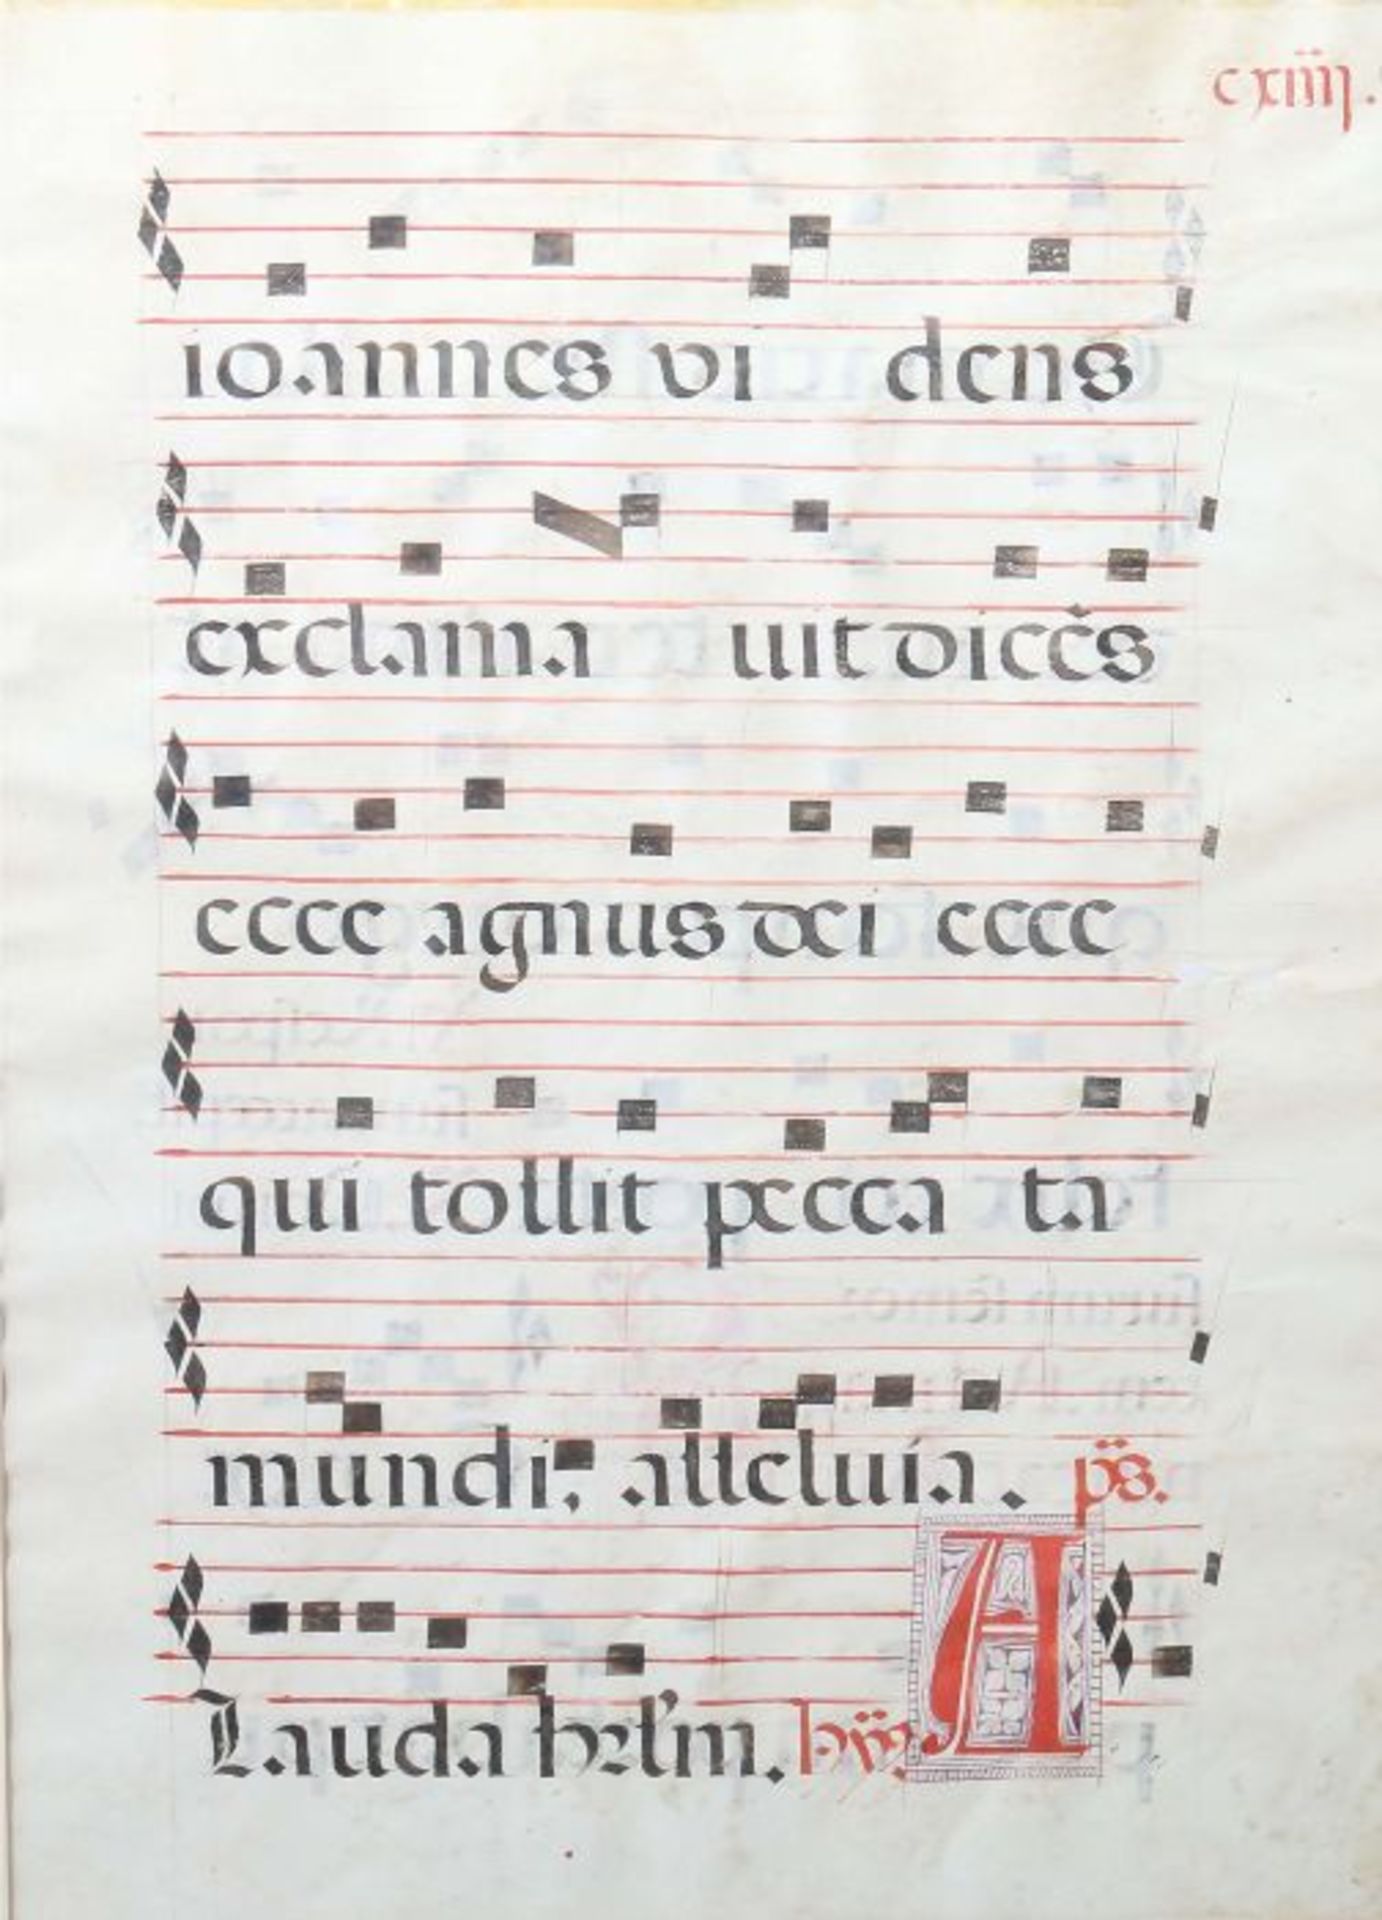 cxiiij.
ioannes vi dens
exclama uit dicēs
ecce agnus dei ecce
qui tollit pecca ta
mundi, alleluia. ps.
Lauda hrlm. hỹ. A